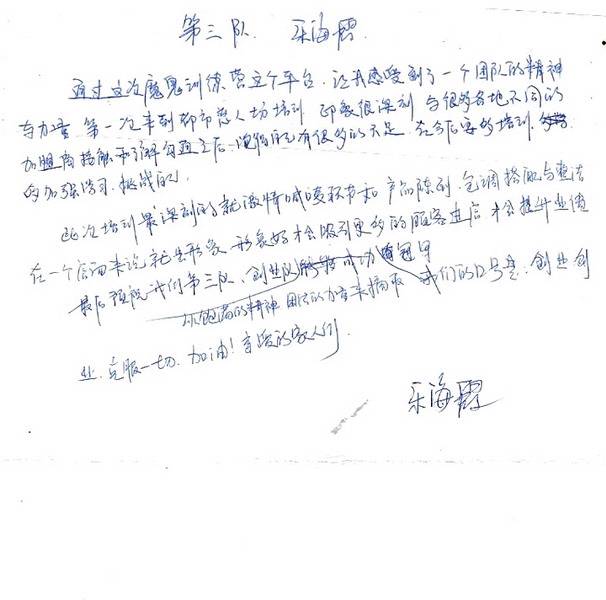 第三队. 乐海霞.
通过这次魔鬼训练营这个平台. 让我感受到了一个团队的精神
与力量 第一次来到都市恋人切培训 印象很深刻 与很多各地不同的
加盟商接触和了解沟通之后 自己有很多的不足. 在今后要多培训.
多加强学习. 挑战自己.
此次培训最深刻的就激情喊麦环节和产品陈列. 色调搭配与整洁
在一个店面来说就是形象 形象好才会吸引更多的顾客进店 才会提升业绩
最后预祝我们第三队. 创业队 成功夺冠甲
以饱满的精神 团队的力量来摘取 我们的口号是. 创业创
业. 克服一切. 加油! 亲爱的家人们
乐海霞